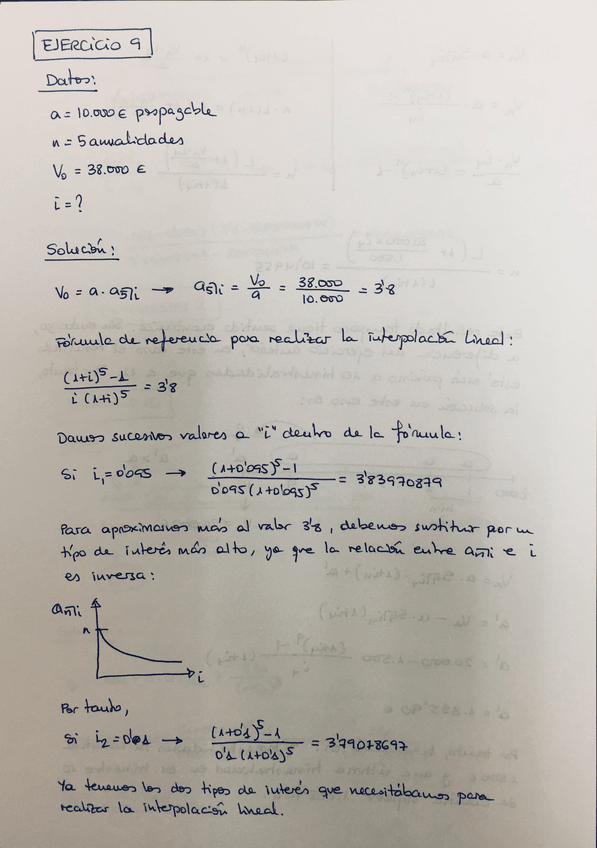 EJERCICIO 9
Datos:
a = 10.000 € propagable
n = 5 anualidades
V₀ = 38.000 €
i = ?
Solución:
V₀ = a · a5̅|i → a5̅|i = V₀/a = 38.000/10.000 = 3'8
Fórmula de referencia para realizar la interpolación lineal:
((1+i)⁵ - 1)/(i (1+i)⁵) = 3'8
Damos sucesivos valores a "i" dentro de la fórmula:
Si i₁ = 0'095 → ((1+0'095)⁵ - 1)/(0'095 (1+0'095)⁵) = 3'83970879
Para aproximarnos más al valor 3'8, debemos sustituir por un
tipo de interés más alto, ya que la relación entre an̅|i e i
es inversa:
an̅|i
n
i
Por tanto,
Si i₂ = 0'1 → ((1+0'1)⁵ - 1)/(0'1 (1+0'1)⁵) = 3'79078697
Ya tenemos los dos tipos de interés que necesitábamos para
realizar la interpolación lineal.